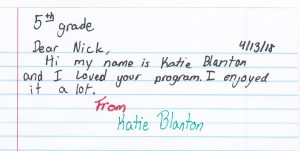 5th grade
Dear Nick, 4/13/18
Hi my name is Katie Blanton
and I Loved your program. I enjoyed
it a lot.
From
Katie Blanton